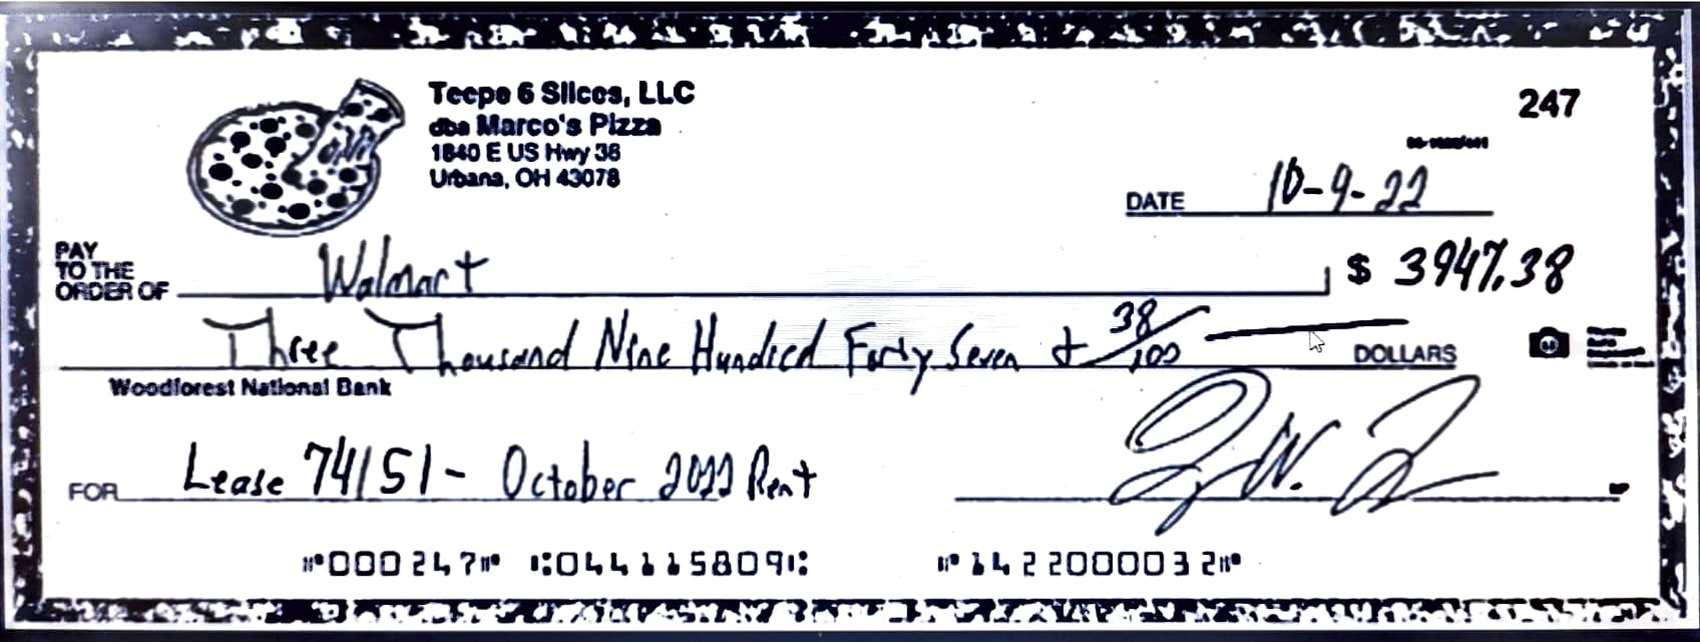 Teepe 6 Slices, LLC
dba Marco's Pizza
247
1840 E US Hwy 36
Urbana, OH 43078
DATE 10-9-22
PAY
TO THE
ORDER OF Walmart $ 3947.38
Three Thousand Nine Hundred Forty Seven + 38/100 DOLLARS
Woodforest National Bank
FOR Lease 74151 - October 2022 Rent
⑈000247⑈ ⑆044115809⑆ ⑈1422000032⑈